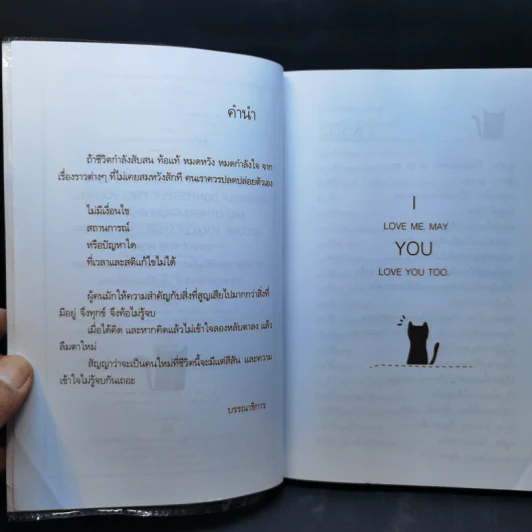 คำนำ
ถ้าชีวิตกำลังสับสน ท้อแท้ หมดหวัง หมดกำลังใจ จาก
เรื่องราวต่างๆ ที่ไม่เคยสมหวังสักที คนเราควรปลดปล่อยตัวเอง
ไม่มีเงื่อนไข
สถานการณ์
หรือปัญหาใด
ที่เวลาและสติแก้ไขไม่ได้
ผู้คนมักให้ความสำคัญกับสิ่งที่สูญเสียไปมากกว่าสิ่งที่
มีอยู่ จึงทุกข์ จึงท้อไม่รู้จบ
เมื่อได้คิด และหากคิดแล้วไม่เข้าใจลองหลับตาลง แล้ว
ลืมตาใหม่
สัญญาว่าจะเป็นคนใหม่ที่ชีวิตนี้จะมีแต่สีสัน และความ
เข้าใจไม่รู้จบกันเถอะ
บรรณาธิการ
I
LOVE ME MAY
YOU
LOVE YOU TOO.